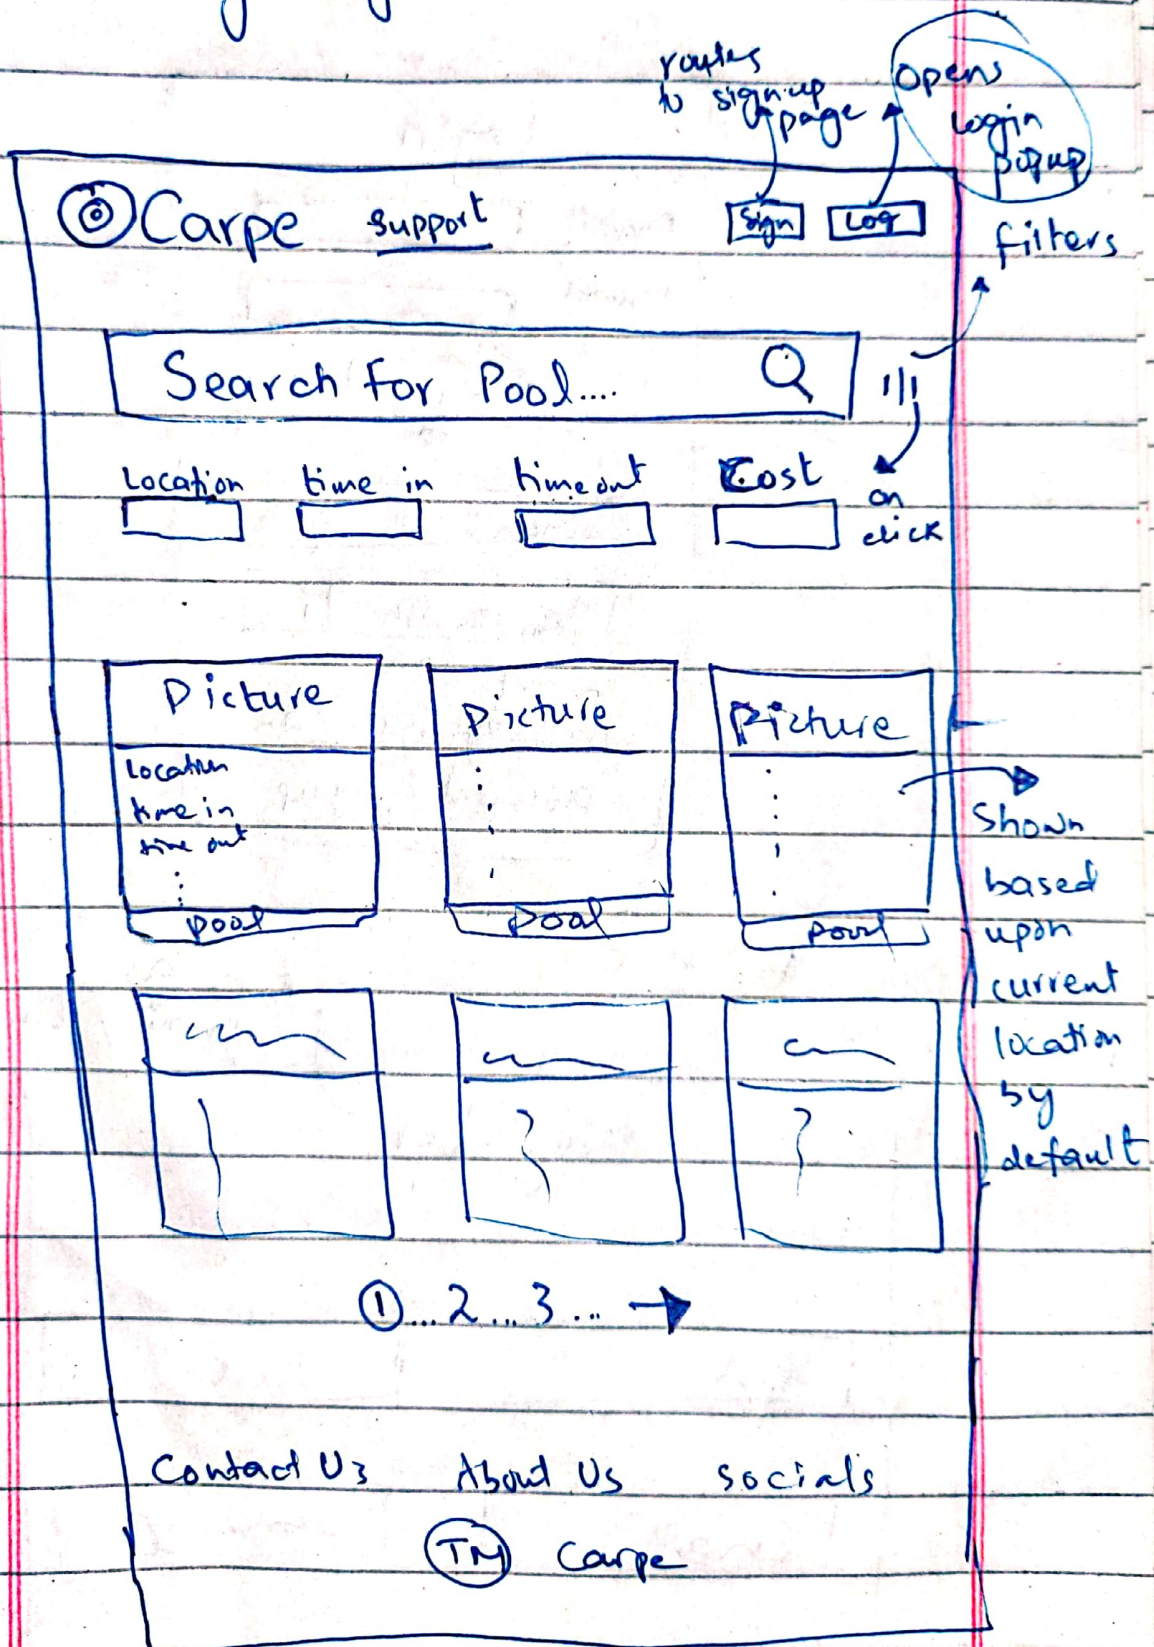 routes
to signup
page
Opens
login
popup
Carpe support
Sign Log
filters
Search for Pool....
Location time in timeout Cost
on
click
Picture Picture Picture
Location
time in
time out
pool pool pool
Shown
based
upon
current
location
by
default
1...2...3...
Contact Us About Us socials
TM Carpe